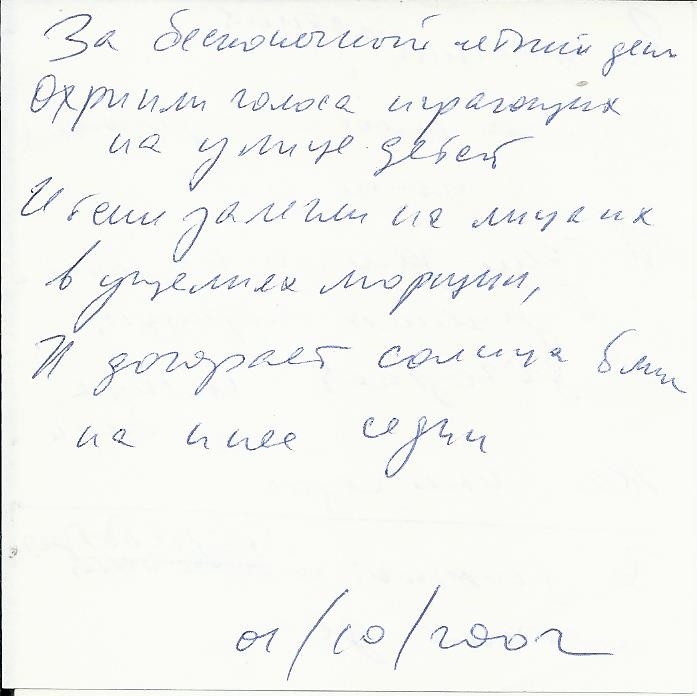 За бесконечный летний день
Охрипли голоса играющих
на улице детей
И тени залегли на лицах их
в ущелиях морщин,
И догорает солнца блик
на инее седин
01/10/2002